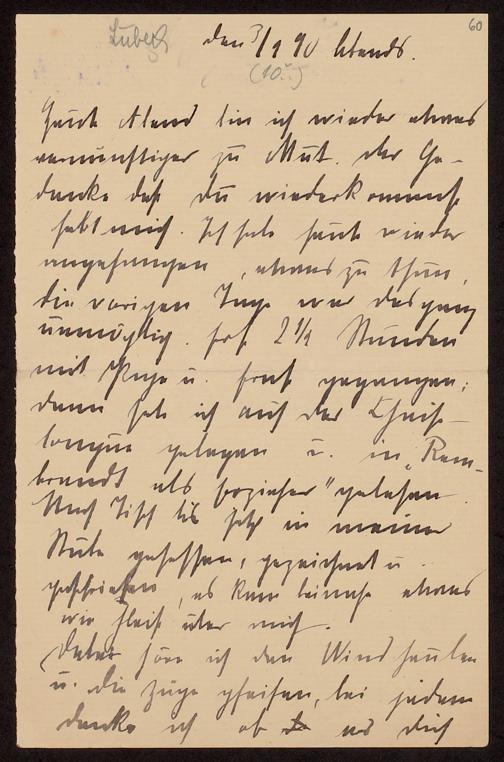 60
Lübeck
den 3/1 90 Abends.
(10.?)
Heute Abend bin ich wieder etwas
vernünftiger zu Mut. Der Ge-
danke daß Du wiederkommst
hebt mich. Ich habe heute wieder
angefangen, etwas zu thun,
die vorigen Tage war das ganz
unmöglich. Erst 2 1/2 Stunden
mit u. Ernst gegangen;
dann hab ich auf der Chaise-
longue gelegen u. in „Rem-
brandt als Erzieher" gelesen.
Nach Tisch bis jetzt in meiner
Stube gesessen, gezeichnet u.
geschrieben, es kam beinahe etwas
wie Fleiß über mich.
Dabei höre ich den Wind heulen
u. die Züge pfeifen, bei jedem
denke ich ob es Dich